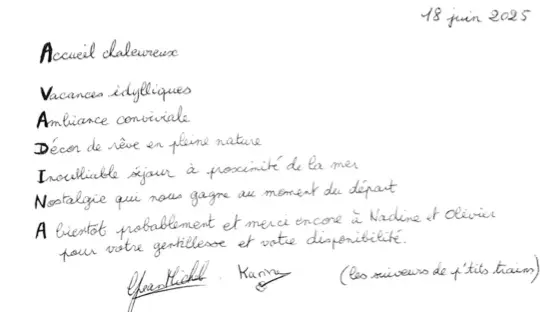 18 juin 2025
Accueil chaleureux
Vacances idylliques
Ambiance conviviale
Décor de rêve en pleine nature
Inoubliable séjour à proximité de la mer
Nostalgie qui nous gagne au moment du départ
A bientôt probablement et merci encore à Nadine et Olivier
pour votre gentillesse et votre disponibilité.
Jean Michel . Karine (les suiveurs de p'tits trains)